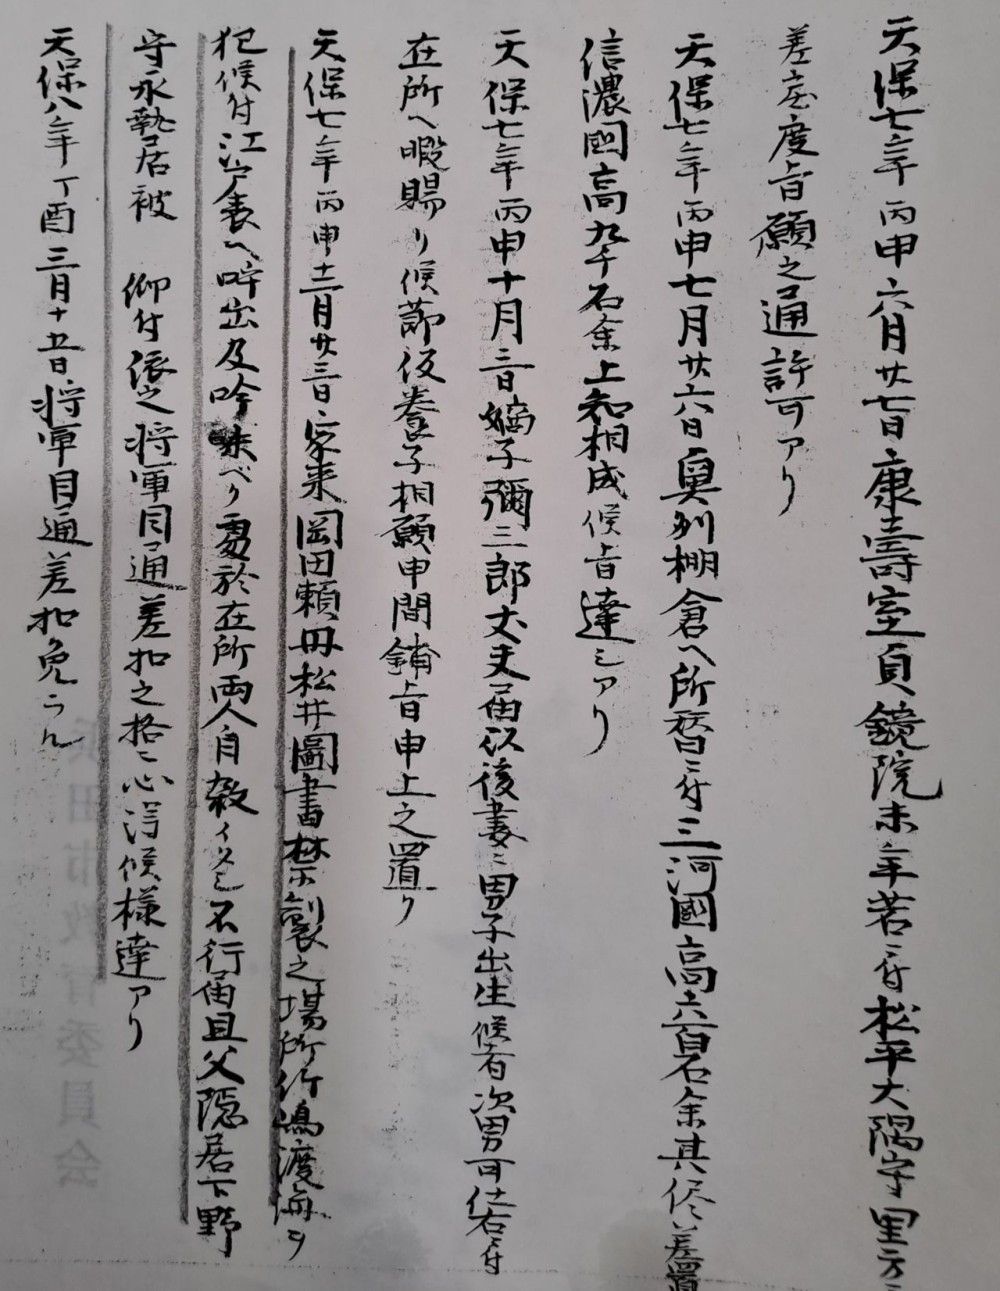 天保七年丙申六月廿七日康壽室貞鏡院未年若ニ付松平大隅守里方ニ
差度旨願之通許可アリ
天保七年丙申七月廿六日奥州棚倉へ所替ニ付三河國高六百石余其侭差置
信濃國高九千石余上知相成候旨達シアリ
天保七年丙申十月三日嫡子彌三郎丈夫届以後妻ニ男子出生候者次男可仕右ニ付
在所へ暇賜リ候節仮養子相願申間鋪旨申上之置リ
天保七年丙申十二月廿三日家来岡田頼母松井圖書禁制之場所竹嶋渡海ヲ
犯候付江戸表へ呼出及吟味ベク處於在所両人自殺イタシ不行届且父隠居下野
守永蟄居被 仰付依之将軍目通差扣之格ニ心得候様達アリ
天保八年丁酉三月十五日将軍目通差扣免ラル
浜田市教育委員会